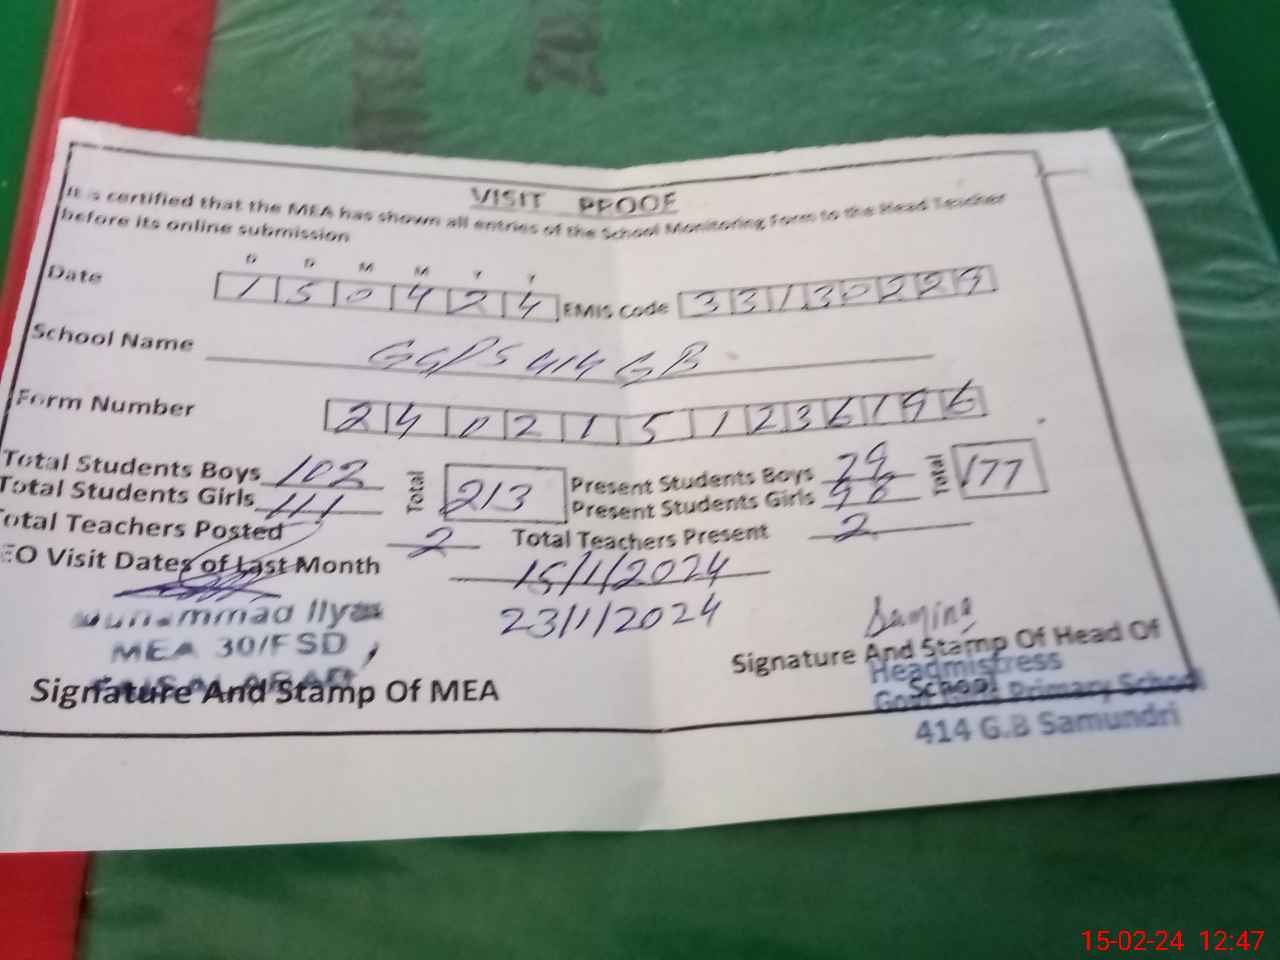 VISIT PROOF
It is certified that the MEA has shown all entries of the School Monitoring Form to the Head Teacher
before its online submission
D D M M Y Y
Date 150424 EMIS Code 33130227
School Name GGPS 414 GB
Form Number 24021512366196
Total Students Boys 102 Total 213 Present Students Boys 79 Total 177
Total Students Girls 111 Present Students Girls 98
Total Teachers Posted 2 Total Teachers Present 2
EO Visit Dates of Last Month 15/1/2024
23/1/2024
Muhammad Ilyas
MEA 30/FSD
Signature And Stamp Of MEA
Samina
Signature And Stamp Of Head Of
School
Headmistress
Govt Primary School
414 G.B Samundri
15-02-24 12:47